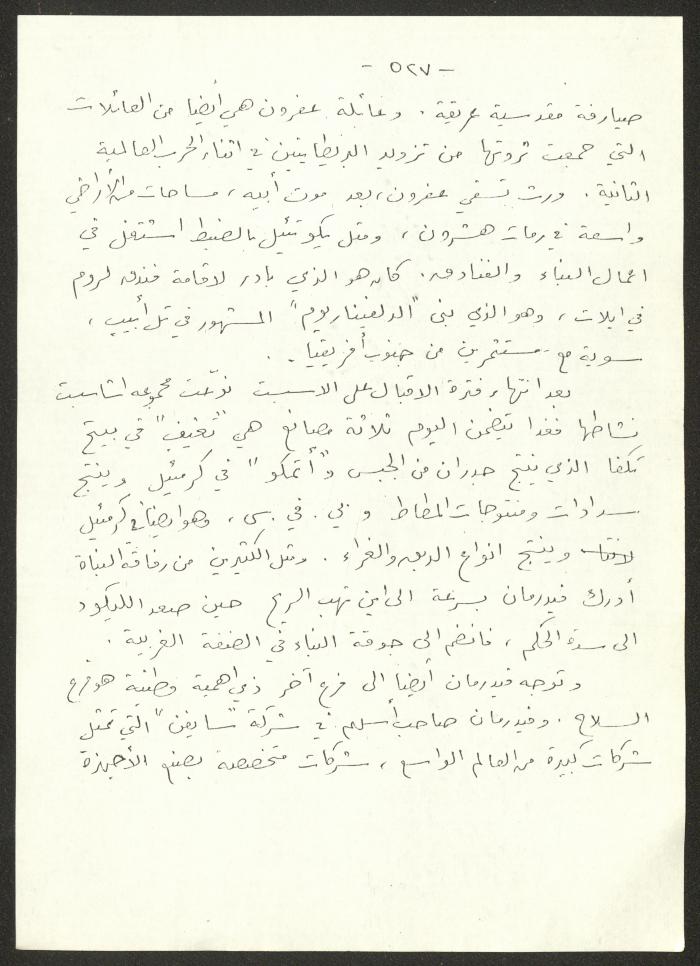 - ٥٢٧ -
صيارفة مقدسية عريقة. وعائلة عفرون هي أيضا من العائلات
التي جمعت ثروتها من تزويد البريطانيين في اثناء الحرب العالمية
الثانية. ورث تسفي عفرون، بعد موت أبيه، مساحات من الأراضي
واسعة في رمات هشرون، ومثل يكوتئيل بالضبط اشتغل في
اعمال البناء والفنادق. كان هو الذي بادر لاقامة فندق لروم
في ايلات، وهو الذي بنى "الدلفيناريوم" المشهور في تل أبيب،
سوية مع مستثمرين من جنوب أفريقيا.
بعد انتهاء فترة الاقبال على الاسبست نوّعت مجموعه اشاسبت
نشاطها فغدا يتضمن اليوم ثلاثة مصانع هي "تغيف" في بيتح
تكفا الذي ينتج جدران من الجبس و"أتمكو" في كرميئيل وينتج
سدادات ومنتوجات المطاط و بي. في. سي، وهو ايضا في كرميئيل
وينتج انواع الدبق والغراء. ومثل الكثيرين من رفاقه البناة
أدرك فيدرمان بسرعة الى اين تهب الريح حين صعد الليكود
الى سدة الحكم، فانضم الى جوقة البناء في الضفة الغربية.
وتوجه فيدرمان أيضا الى فرع آخر ذي اهمية وطنية هو فرع
السلاح. وفيدرمان صاحب أسهم في شركة "سايفن" التي تمثل
شركات كبيرة من العالم الواسع، شركات متخصصة بصنع الأجهزة